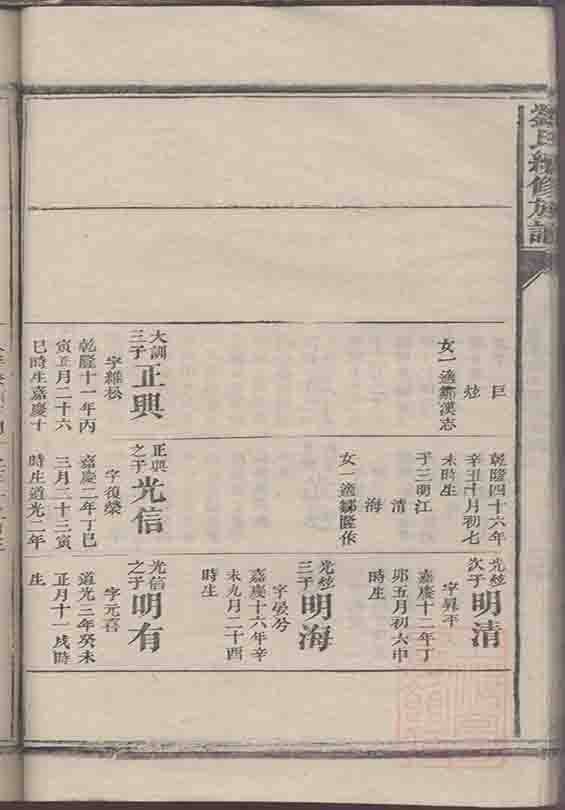 劉氏續修族譜
巨
炫
女一適鄒漢志
大訓三子正興
字維松
乾隆十一年丙
寅正月二十六
巳時生嘉慶十
乾隆四十六年
辛丑十月初七
未時生
子三明江
清
海
女一適鄒隆依
正興之子光信
字復榮
嘉慶二年丁巳
三月二十三寅
時生道光二年
光炫次子明清
字昇平
嘉慶十二年丁
卯五月初六申
時生
光炫三子明海
字晏兮
嘉慶十六年辛
未九月二十酉
時生
光信之子明有
字元喜
道光三年癸未
正月十一戌時
生